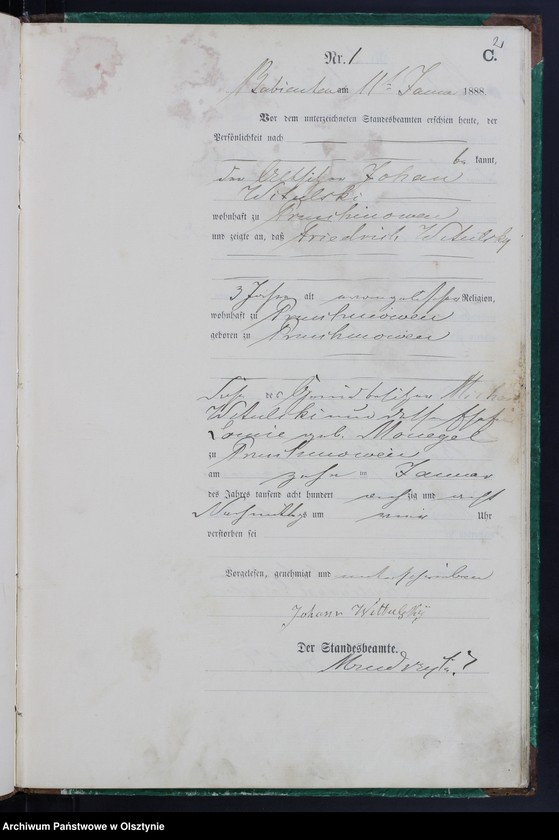 2
C.
Nr. 1
Babienten am 11t Januar 1888.
Vor dem unterzeichneten Standesbeamten erschien heute, der
Persönlichkeit nach
be kannt,
der Altsitzer Johann
Witulski
wohnhaft zu Pruschinowen
und zeigte an, daß Friedrich Witulsky
3 Jahr alt evangelischer Religion,
wohnhaft zu Pruschinowen
geboren zu Pruschinowen
Sohn des Grundbesitzer Michael
Witulski und deß Ehefr
Louise geb. Monegel
zu Pruschinowen
am zehn ten Januar
des Jahres tausend acht hundert achtzig und acht
Nachmittags um vier Uhr
verstorben sei
Vorgelesen, genehmigt und unterschrieben
Johann Wittulský
Der Standesbeamte.
Archiwum Państwowe w Olsztynie